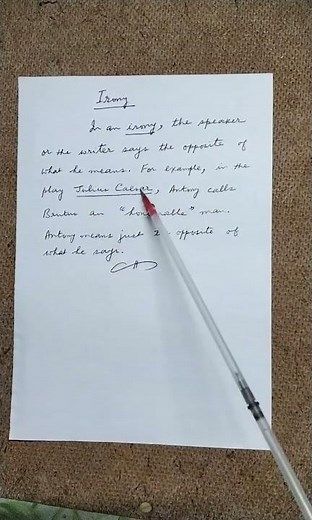 Irony
In an irony, the speaker
or the writer says the opposite of
what he means. For example, in the
play Julius Caesar, Antony calls
Brutus an "honourable" man.
Antony means just the opposite of
what he says.